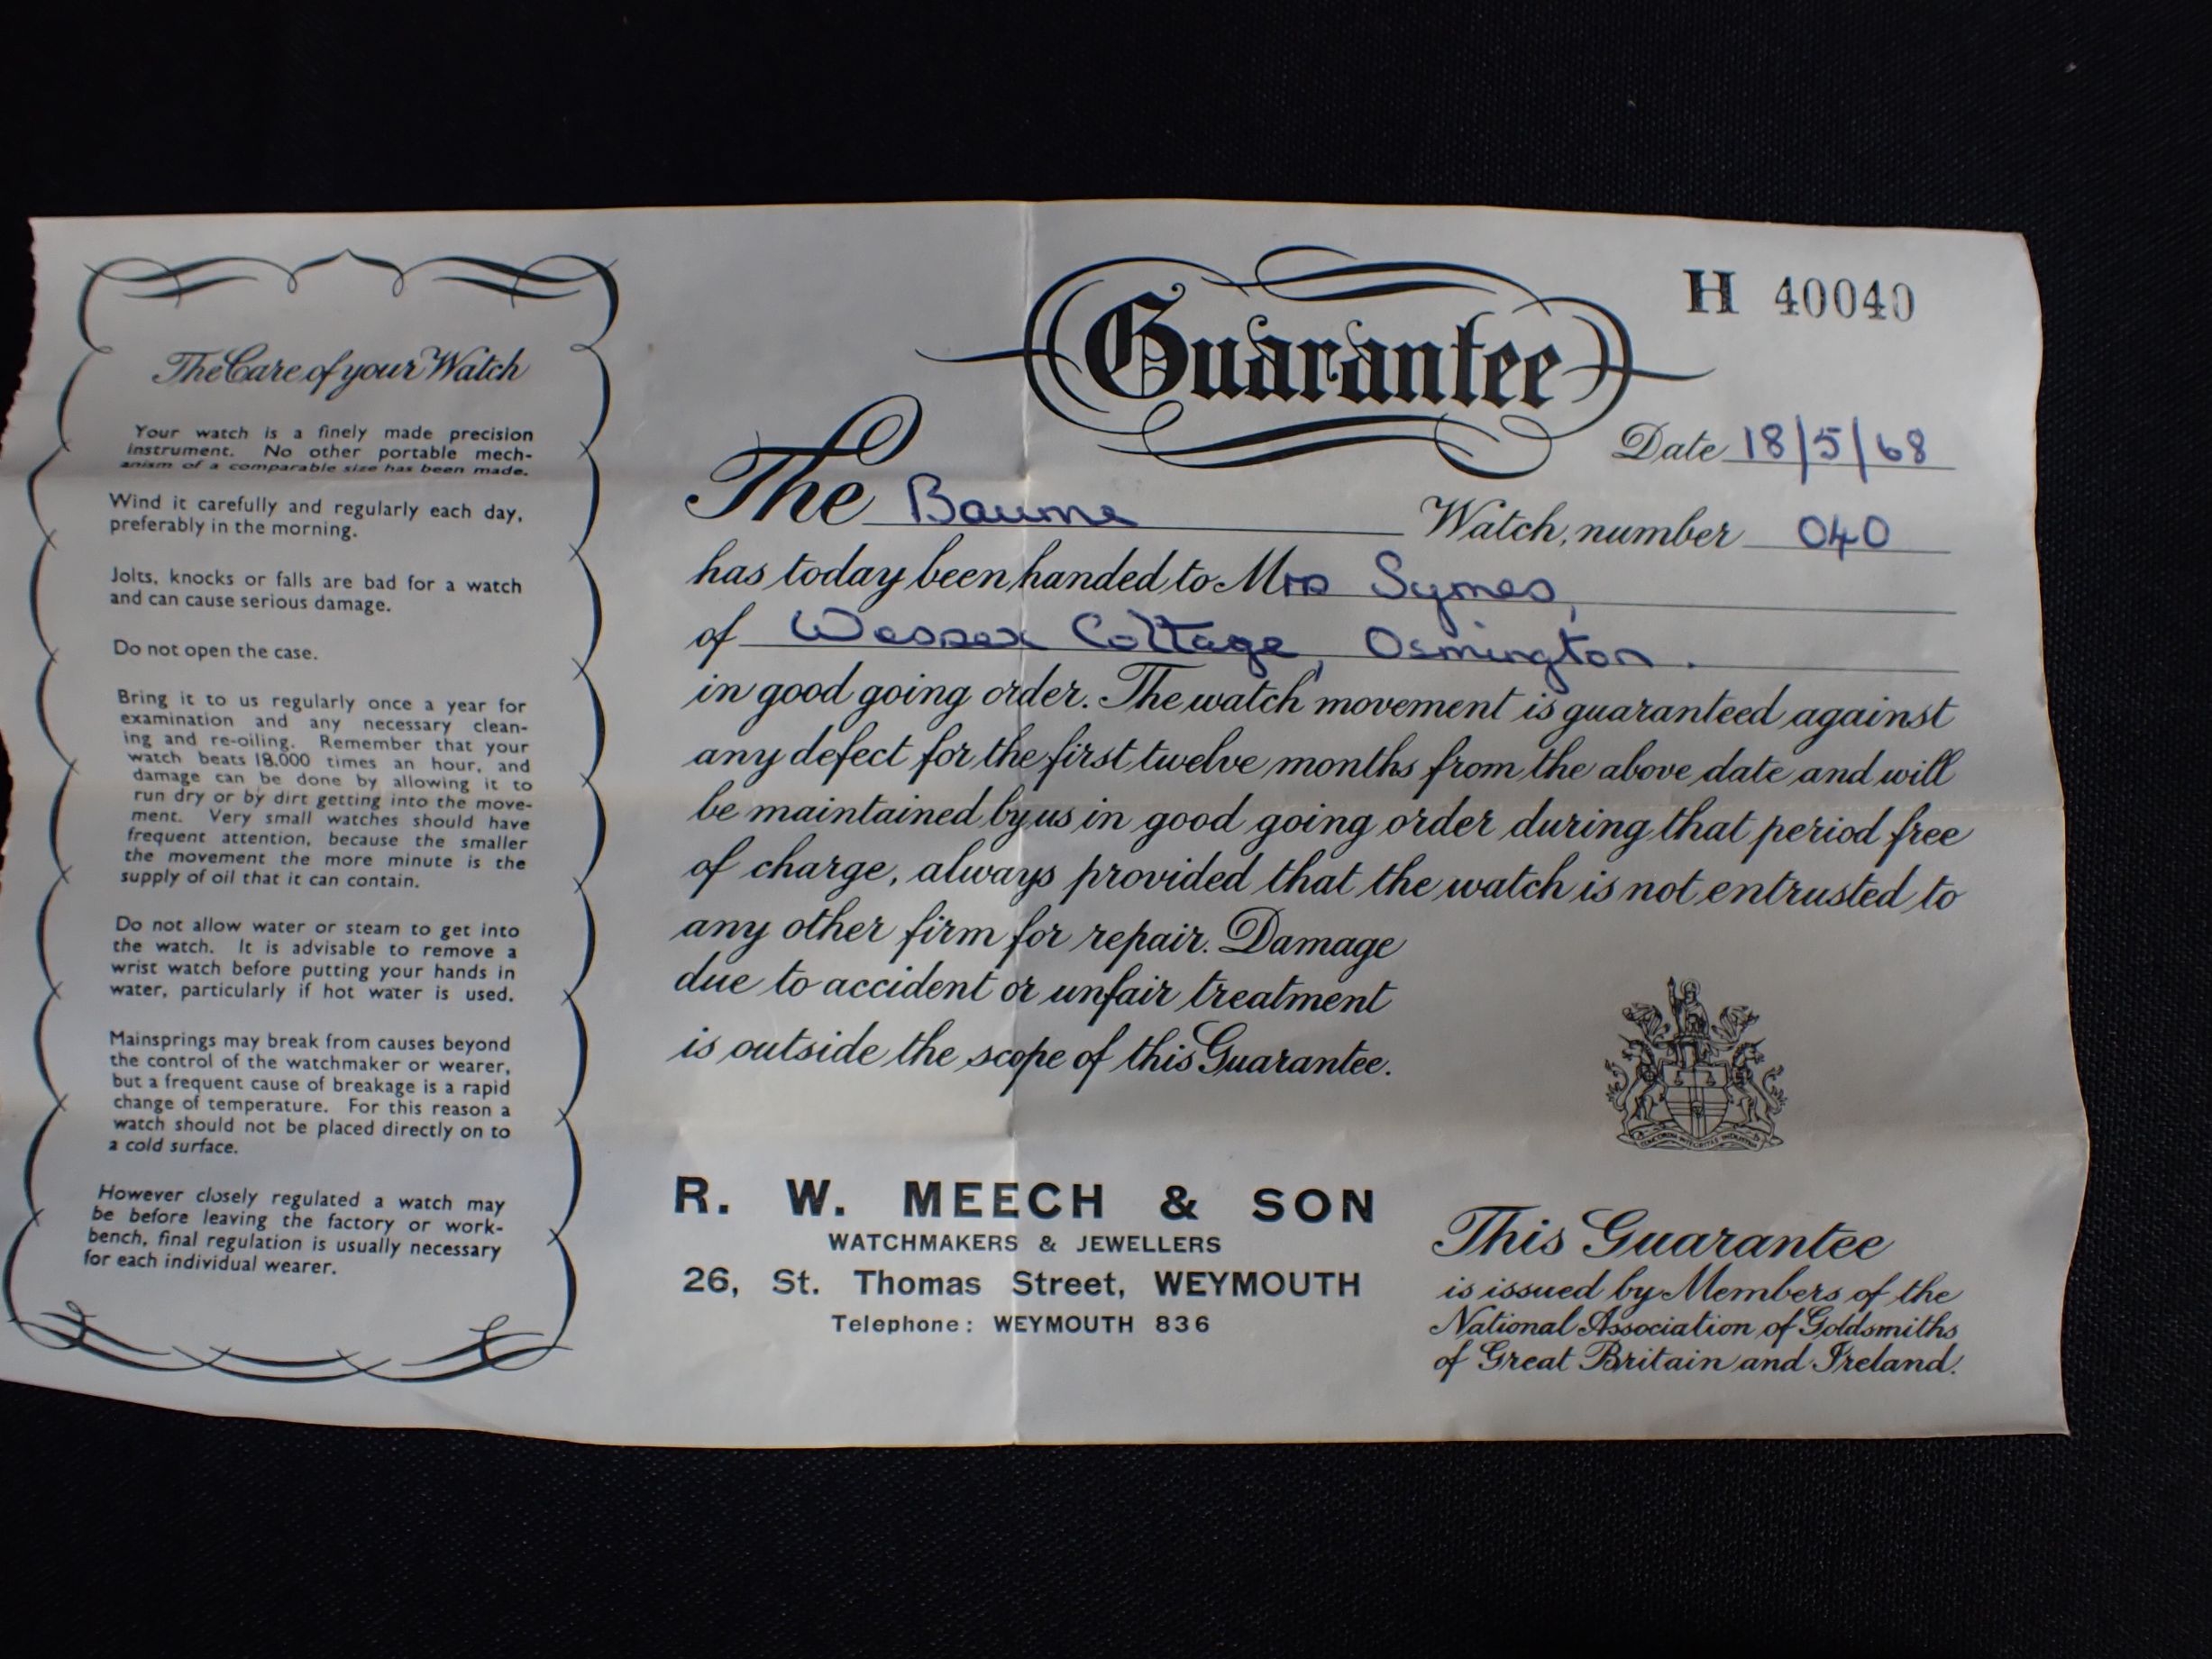 The Care of your Watch
Your watch is a finely made precision
instrument. No other portable mech-
anism of a comparable size has been made.
Wind it carefully and regularly each day,
preferably in the morning.
Jolts, knocks or falls are bad for a watch
and can cause serious damage.
Do not open the case.
Bring it to us regularly once a year for
examination and any necessary clean-
ing and re-oiling. Remember that your
watch beats 18,000 times an hour, and
damage can be done by allowing it to
run dry or by dirt getting into the move-
ment. Very small watches should have
frequent attention, because the smaller
the movement the more minute is the
supply of oil that it can contain.
Do not allow water or steam to get into
the watch. It is advisable to remove a
wrist watch before putting your hands in
water, particularly if hot water is used.
Mainsprings may break from causes beyond
the control of the watchmaker or wearer,
but a frequent cause of breakage is a rapid
change of temperature. For this reason a
watch should not be placed directly on to
a cold surface.
However closely regulated a watch may
be before leaving the factory or work-
bench, final regulation is usually necessary
for each individual wearer.
H 40040
Guarantee
Date 18/5/68
The Baume Watch, number 040
has today been handed to Mrs Symes,
of Wessex Cottage, Osmington.
in good going order. The watch movement is guaranteed against
any defect for the first twelve months from the above date and will
be maintained by us in good going order during that period free
of charge, always provided that the watch is not entrusted to
any other firm for repair. Damage
due to accident or unfair treatment
is outside the scope of this Guarantee.
R. W. MEECH & SON
WATCHMAKERS & JEWELLERS
26, St. Thomas Street, WEYMOUTH
Telephone: WEYMOUTH 836
This Guarantee
is issued by Members of the
National Association of Goldsmiths
of Great Britain and Ireland.